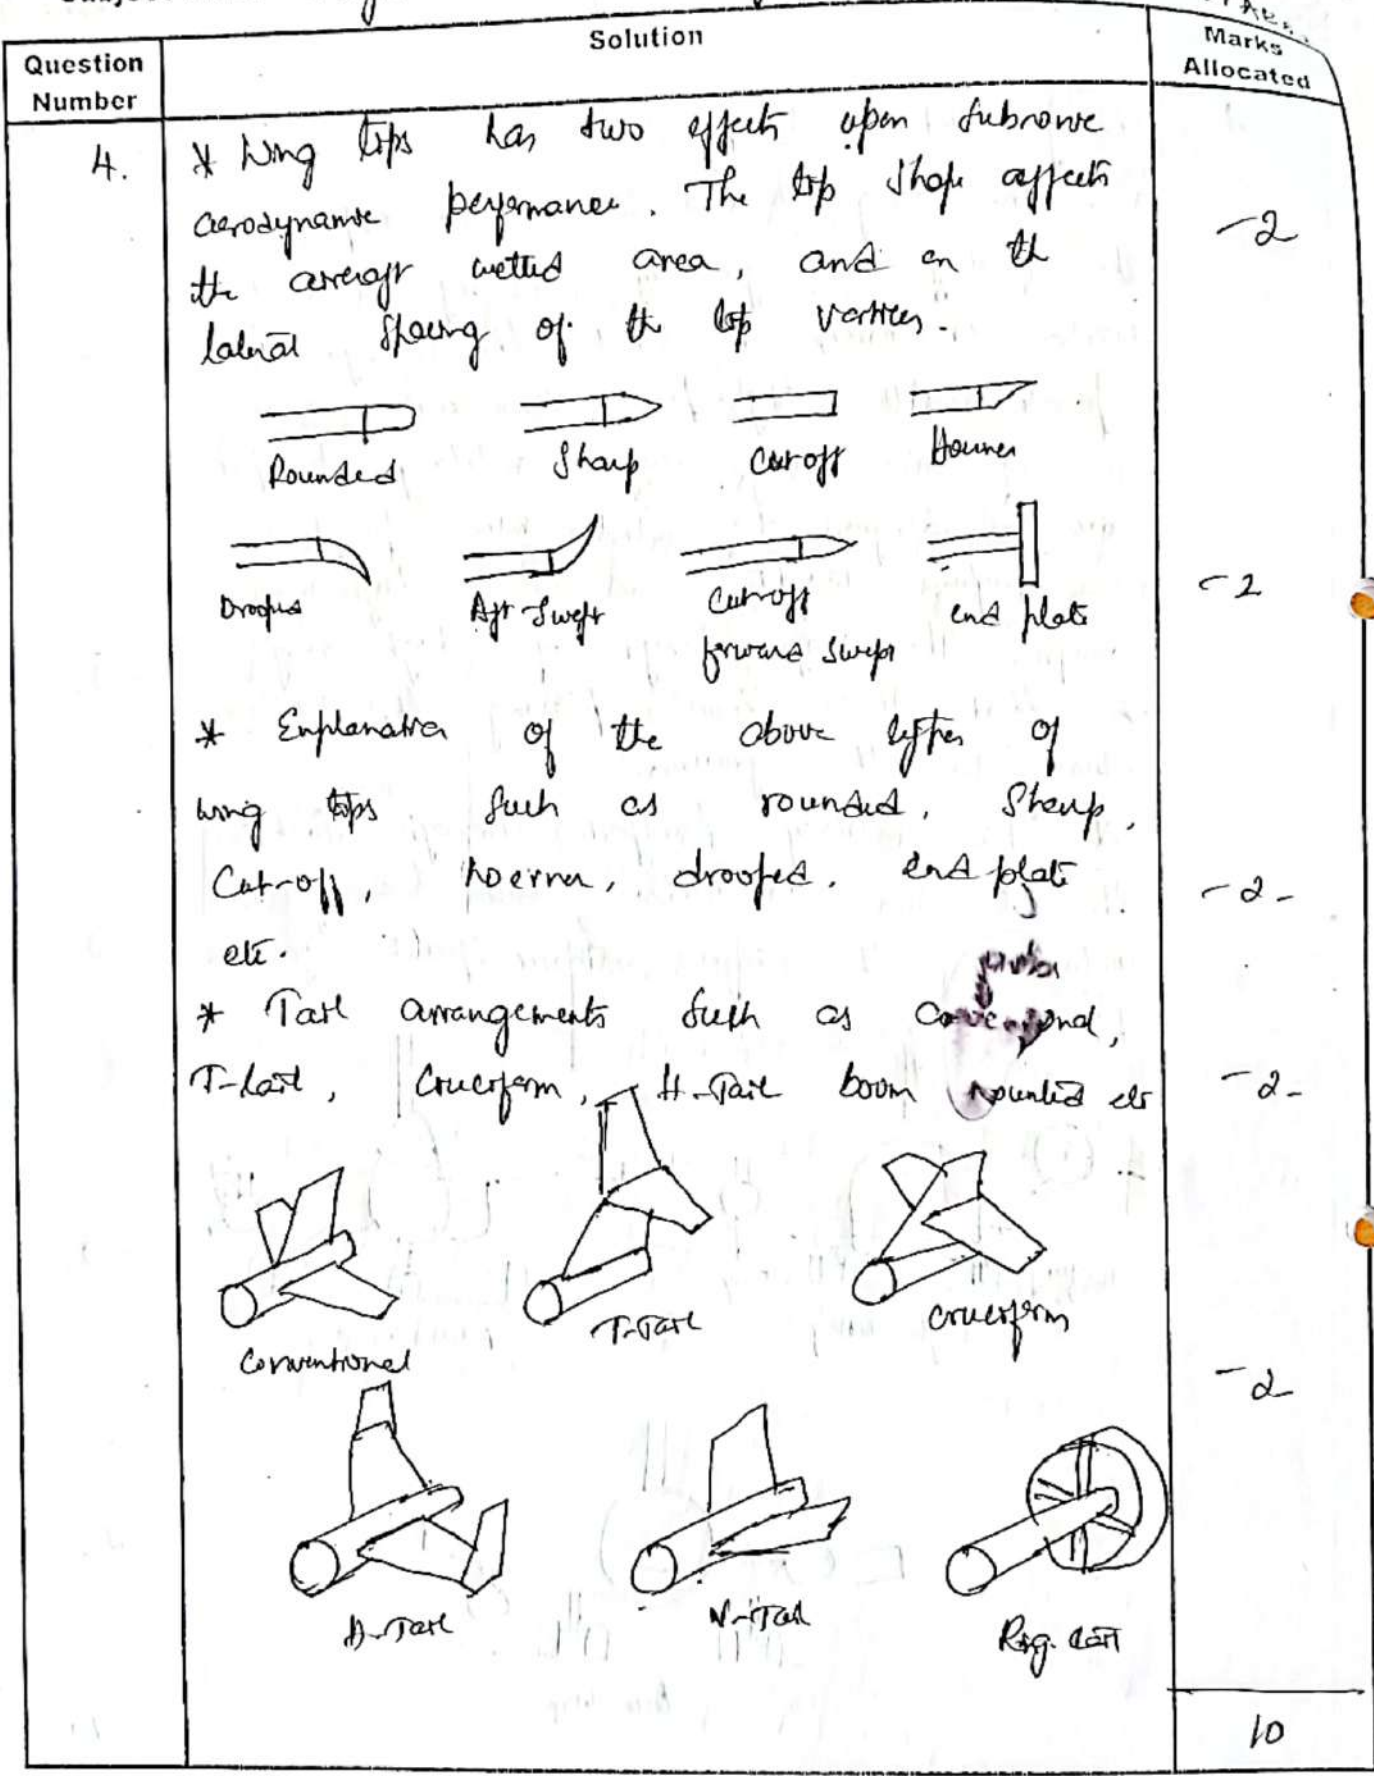 Question Number
Solution
Marks Allocated
4.
* Wing tips has two effects upon subsonic
aerodynamic performance. The tip shape affects
the aircraft wetted area, and on the
lateral spacing of the tip vortices.
-2
Rounded
Sharp
Cut off
Hoerner
Drooped
Aft-Swept
Cut-off
forward swept
end plate
-2
* Explanation of the above types of
wing tips such as rounded, sharp,
Cut-off, hoerner, drooped, end plate
etc.
-2-
* Tail arrangements such as
T-tail, Cruciform, H-Tail boom mounted etc
-2-
Conventional
T-Tail
Cruciform
-2
H-Tail
V-Tail
Ring tail
10